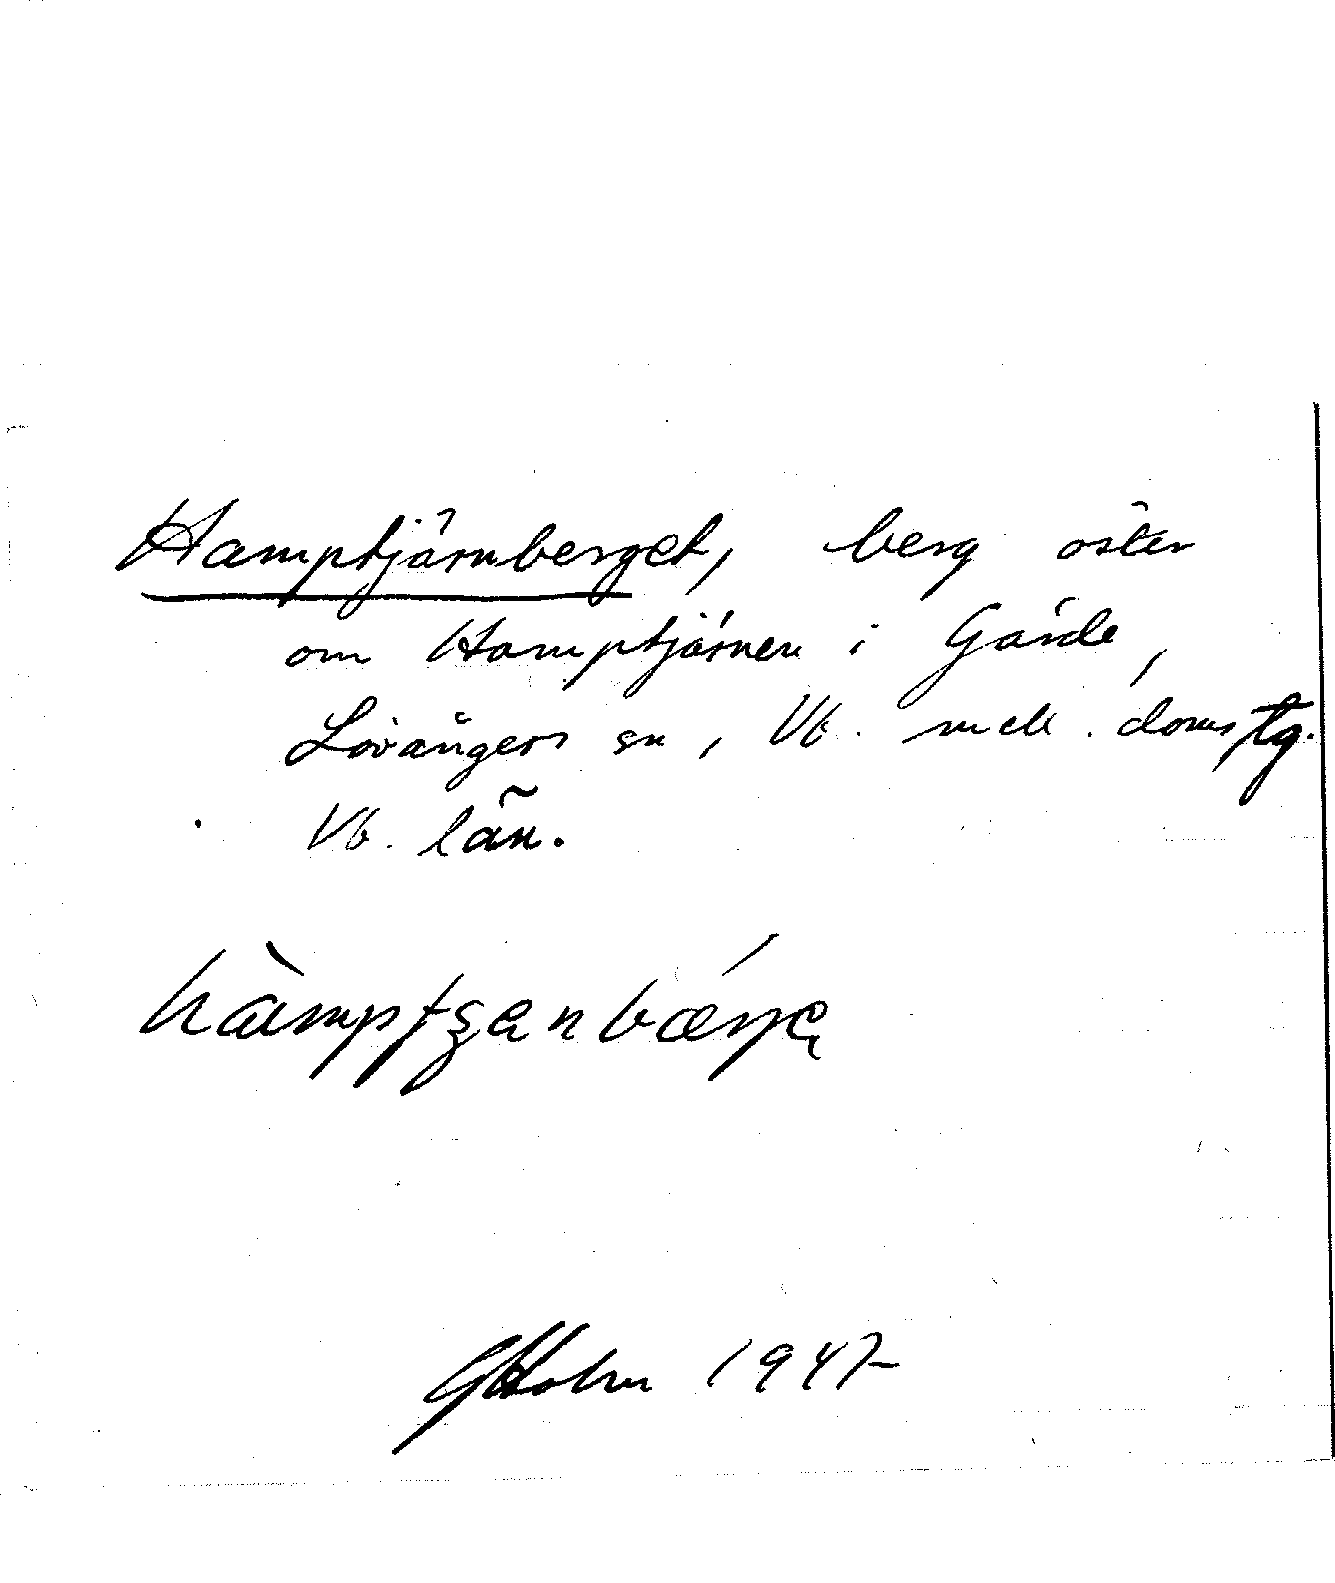 Hamptjärnberget, berg öster
om Hamptjärnen i Gärde,
Lövångers sn, Vb. mell. doms tg.
Vb. län.
GHolm 1947